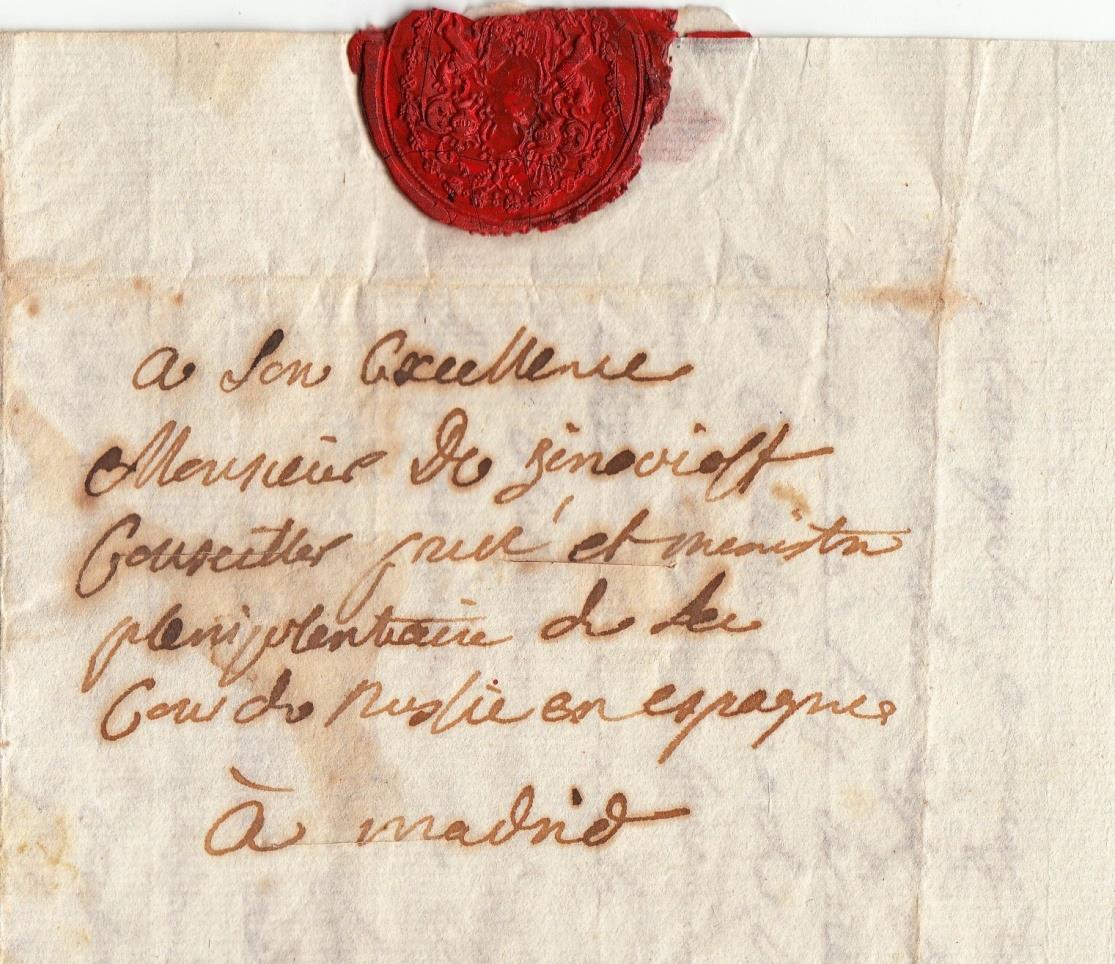 a Son Excellence
Monsieur De Zinovieff
Conseiller privé et ministre
plenipotentiaire de la
Cour de Russie en espagne
à madrid